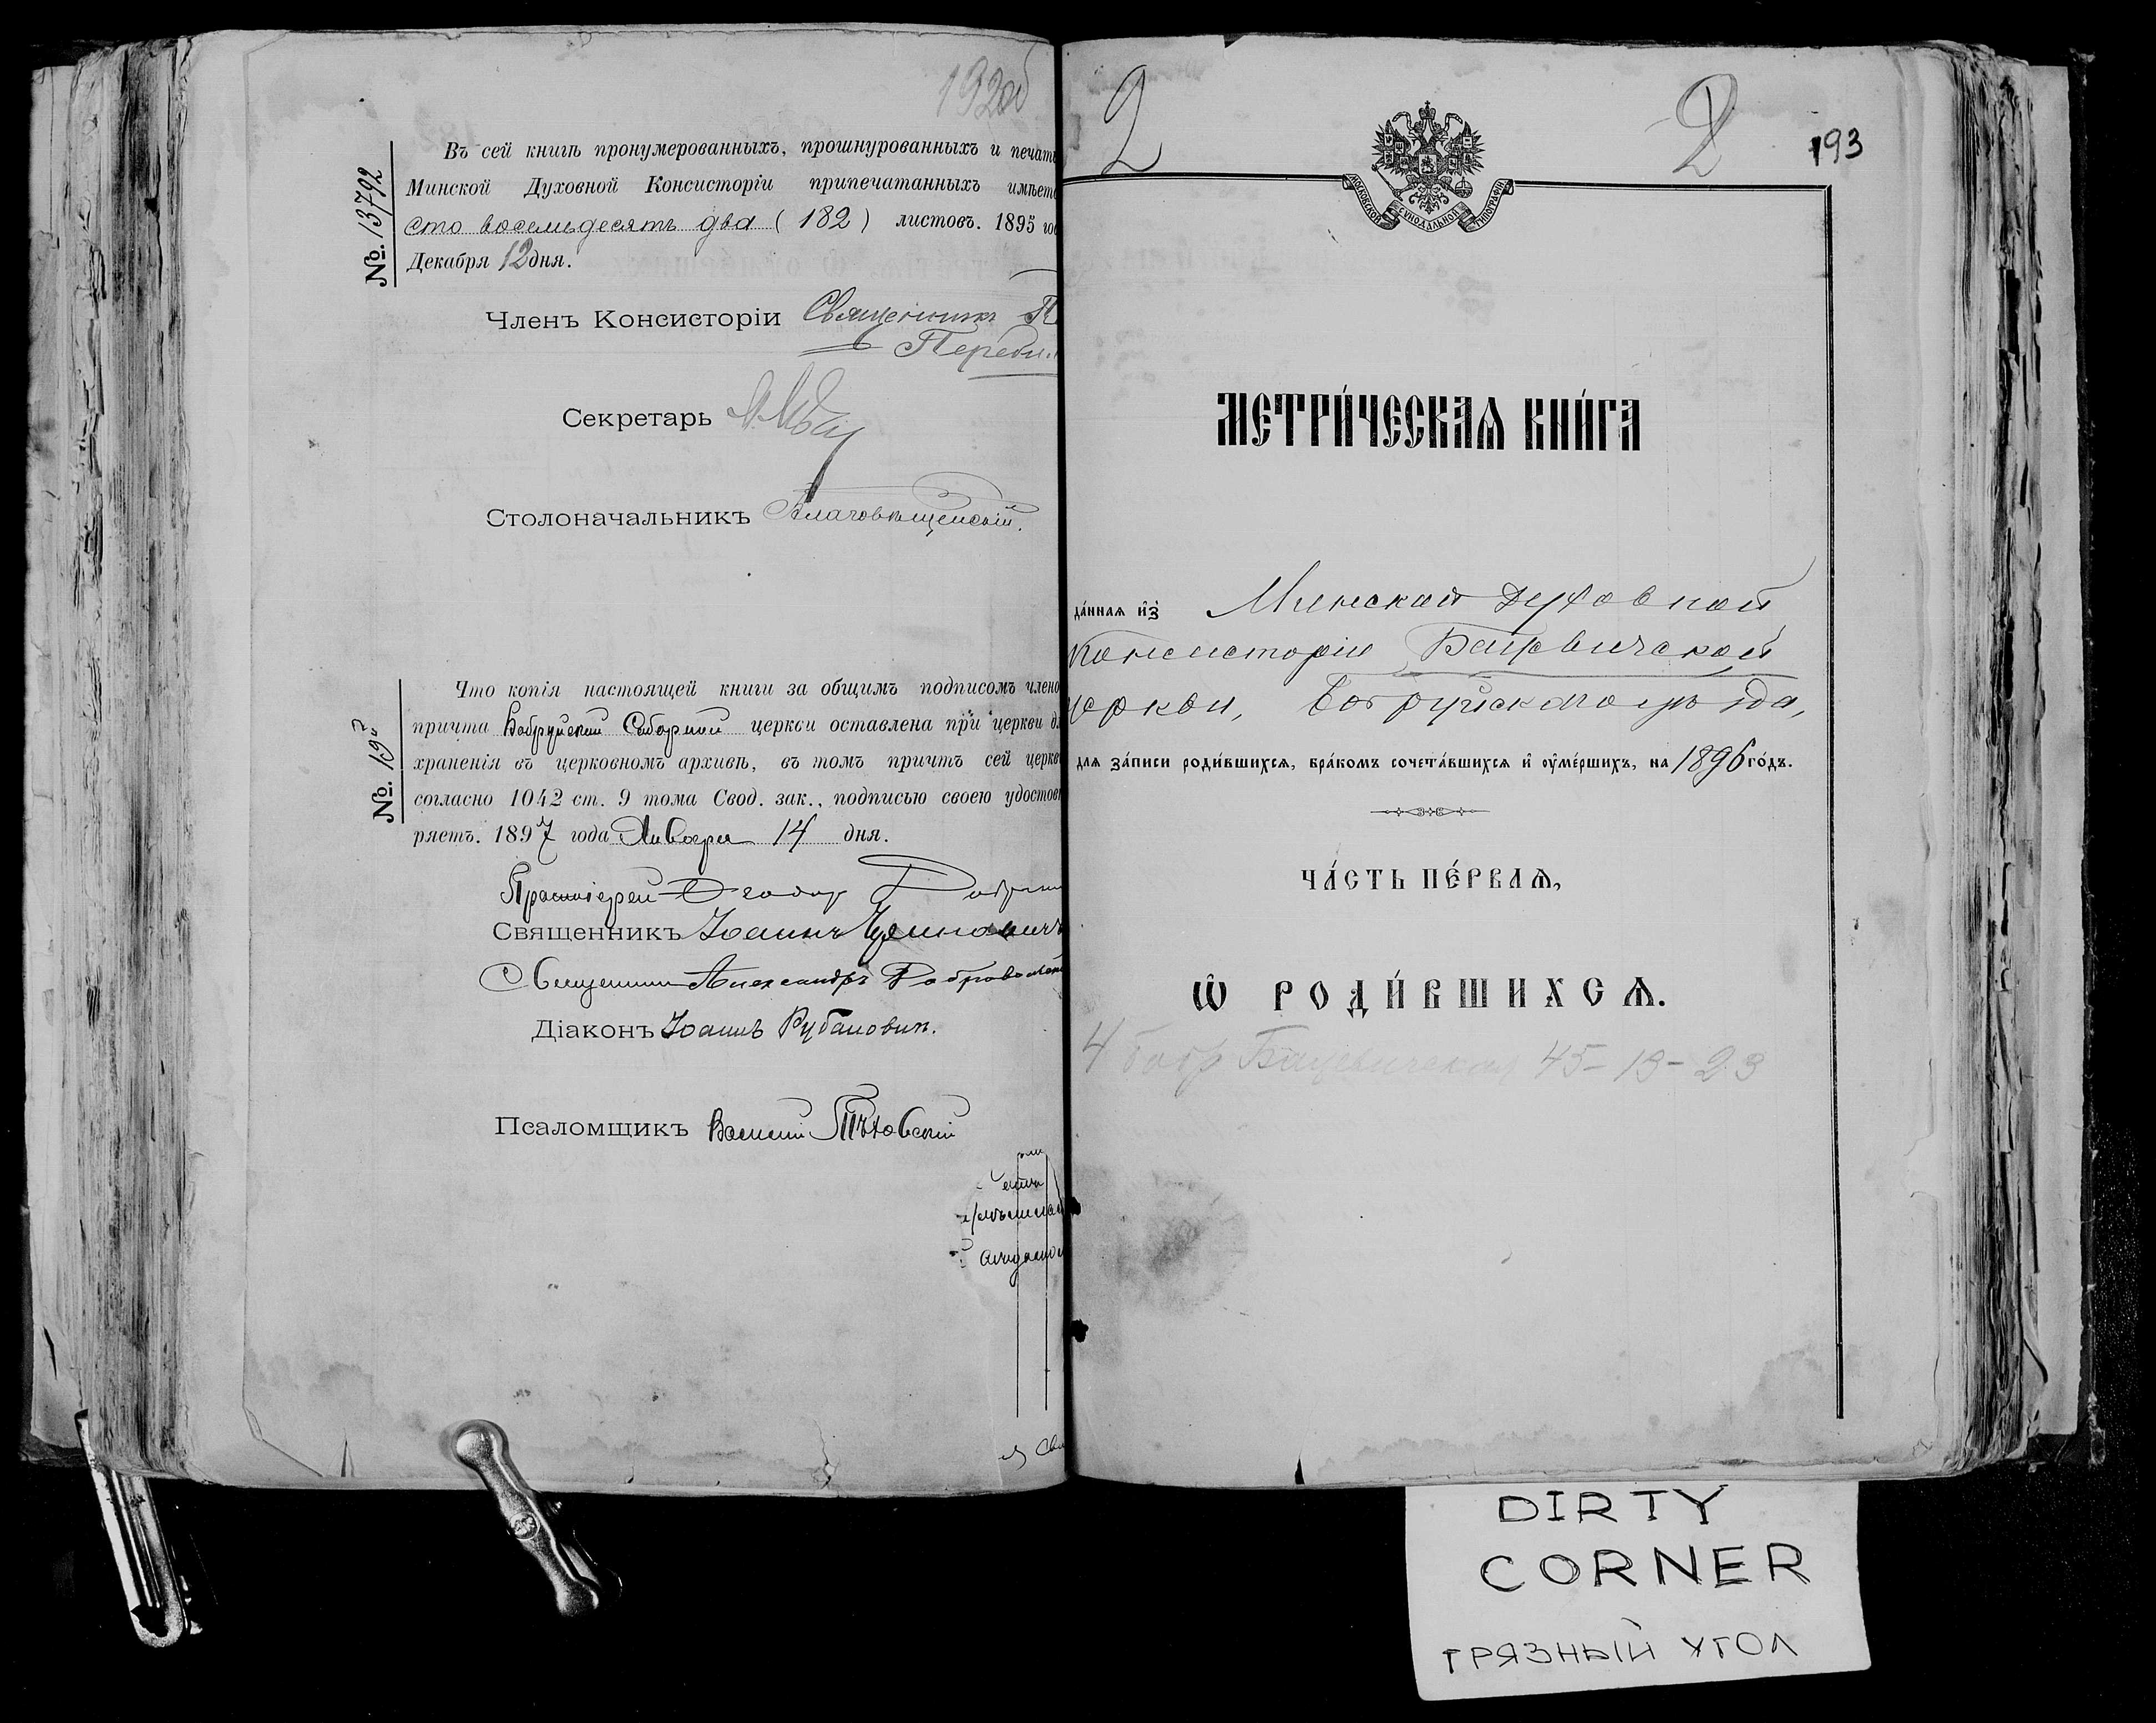 192об
№ 13792
Въ сей книгѣ пронумерованныхъ, прошнурованныхъ и печать
Минской Духовной Консисторіи припечатанныхъ имѣетс
сто восемьдесятъ два ( 182 ) листовъ. 1895 го
Декабря 12 дня.
Членъ Консисторіи Священникъ
Секретарь
Столоначальникъ Благовѣщенскій.
№ 19
Что копія настоящей книги за общимъ подписомъ члено
причта Бобруйской Соборной церкви оставлена при церкви дл
храненія въ церковномъ архивѣ, въ томъ причтъ сей церкв
согласно 1042 ст. 9 тома Свод. зак., подписью своею удостов
ряетъ. 1897 года Января 14 дня.
Протоіерей
Священникъ Іоаннъ
Священникъ Александръ Добровольск
Діаконъ Іоаннъ Рубановичъ.
Псаломщикъ Василій
2
2
193
МОСКОВСКОЙ СѴНОДАЛЬНОЙ ТИПОГРАФІИ
МЕТРИ́ЧЕСКАѦ КНИ́ГА
да́ннаѧ и҆з̾ Минской Духовной
Консисторіи Бацевичской
церкви, Бобруйскаго уѣзда,
для за́писи роди́вшихсѧ, бра́комъ сочета́вшихсѧ и҆ ᲂу҆ме́ршихъ, на 1896 го́дъ.
ЧА́СТЬ ПЕ́РВАѦ,
Ѽ РОДИ́ВШИХСѦ.
4 бобр Бацевичская 45-13-23
DIRTY
CORNER
ГРЯЗНЫЙ УГОЛ